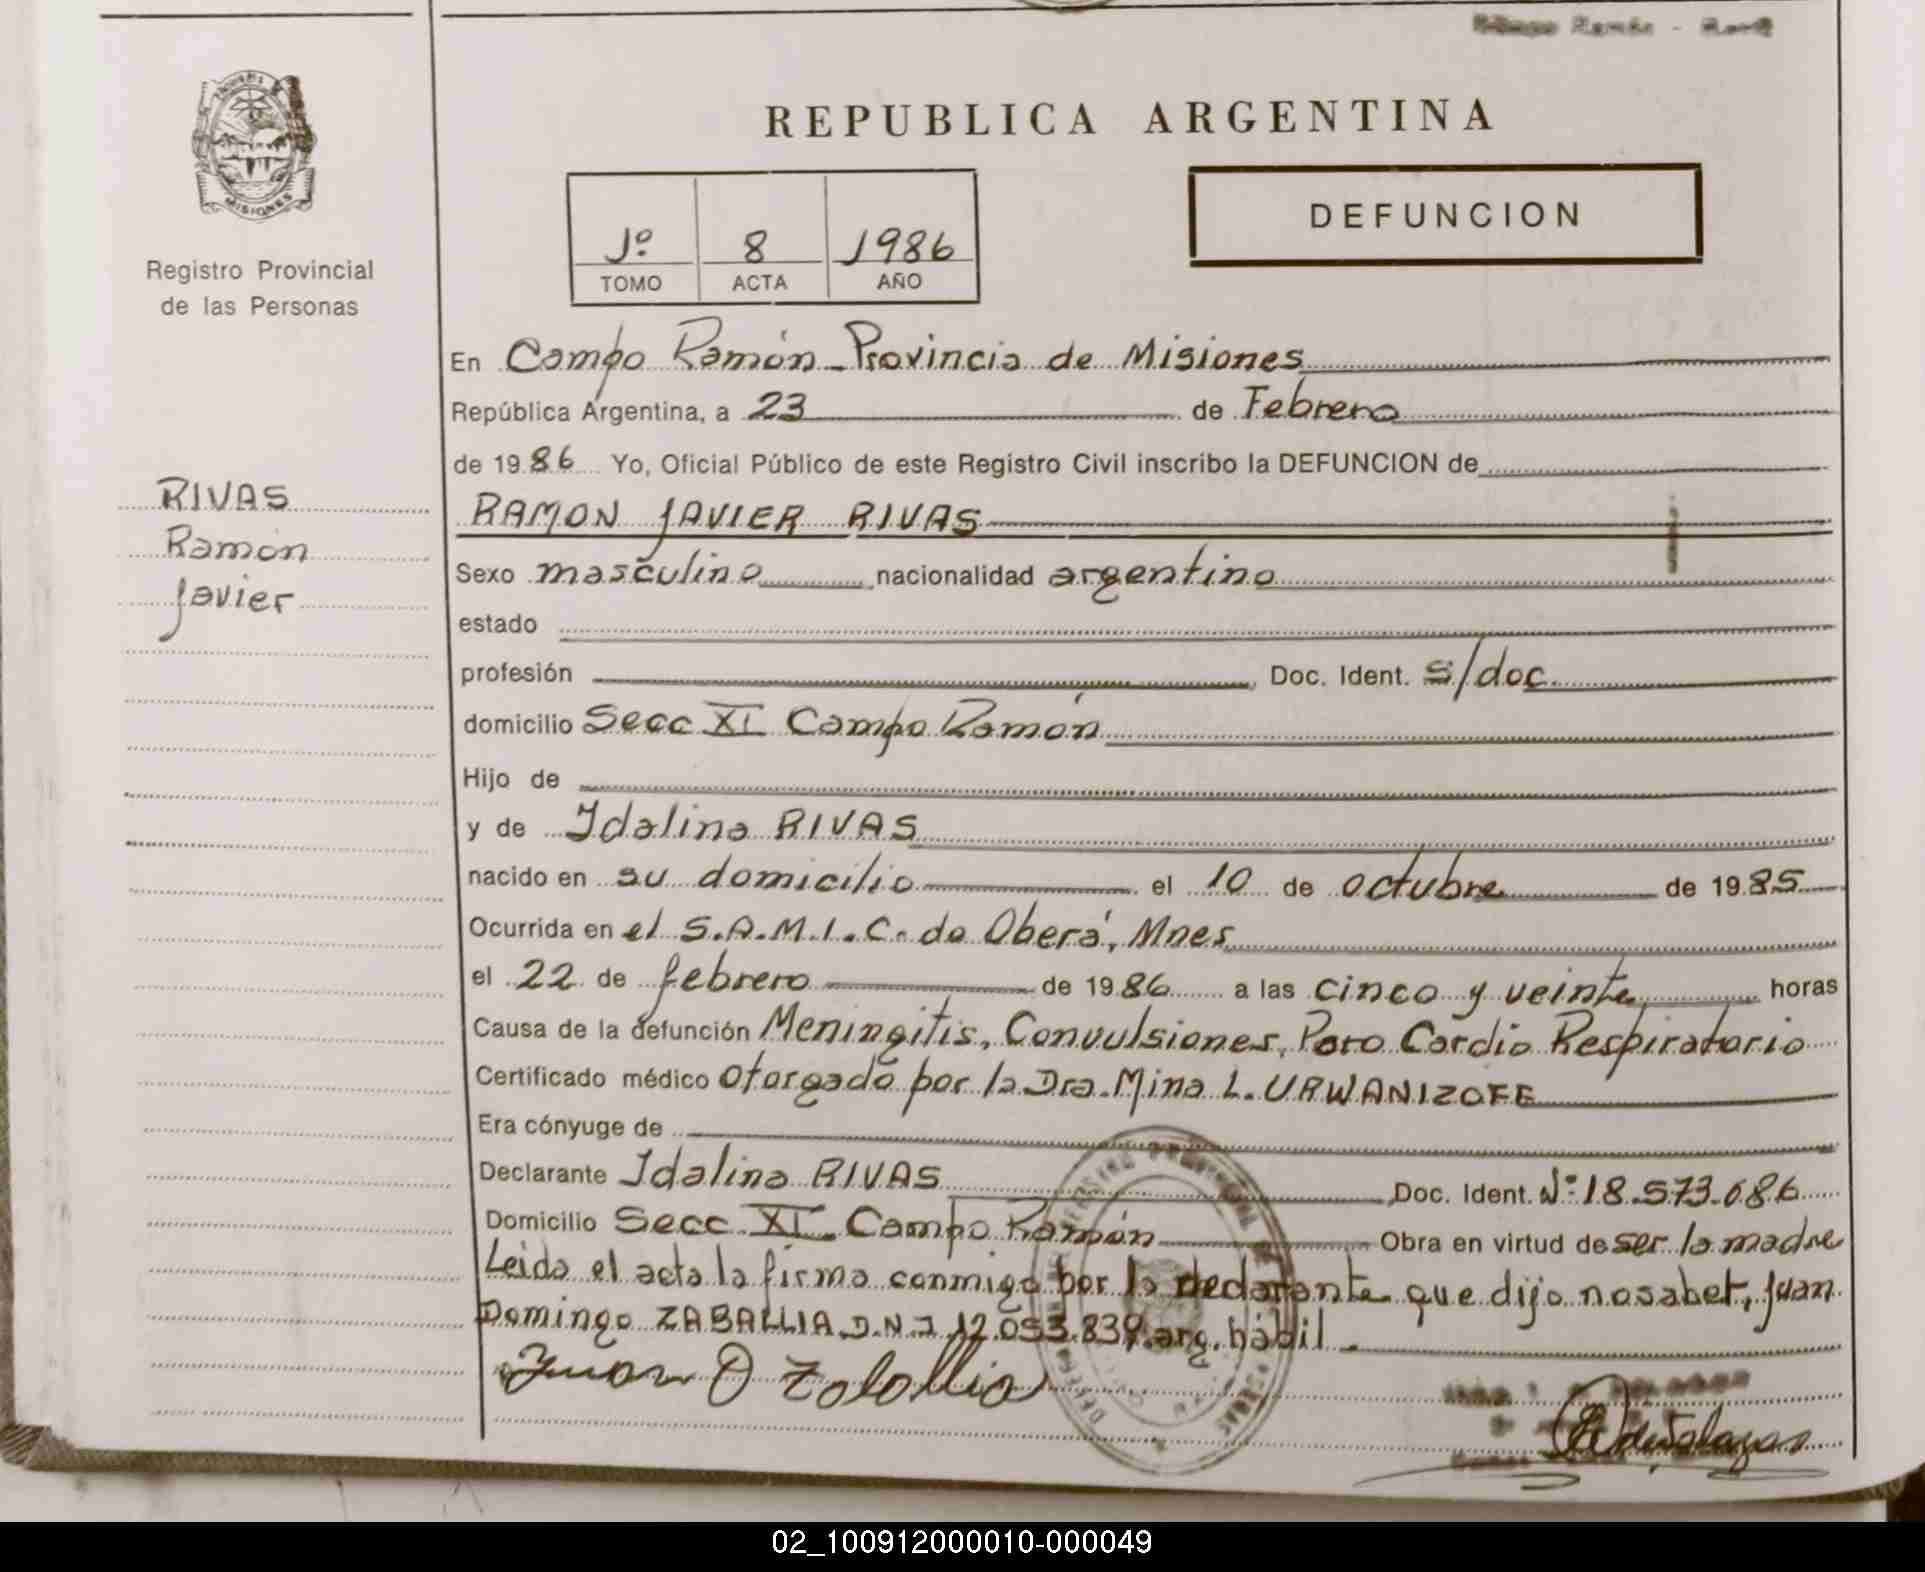 REPUBLICA ARGENTINA
MISIONES
Registro Provincial
de las Personas
1º 8 1986
TOMO ACTA AÑO
DEFUNCION
RIVAS
Ramón
Javier
En Campo Ramón - Provincia de Misiones
República Argentina, a 23 de Febrero
de 1986 Yo, Oficial Público de este Registro Civil inscribo la DEFUNCION de
RAMON JAVIER RIVAS
Sexo masculino nacionalidad argentino
estado
profesión Doc. Ident. s/doc.
domicilio Secc XI Campo Ramón
Hijo de
y de Idalina RIVAS
nacido en su domicilio el 10 de octubre de 1985
Ocurrida en el S.A.M.I.C. de Oberá, Mnes
el 22 de febrero de 1986 a las cinco y veinte horas
Causa de la defunción Meningitis, Convulsiones, Paro Cardio Respiratorio
Certificado médico otorgado por la Dra. Mina L. URWANIZOFE
Era cónyuge de
Declarante Idalina RIVAS Doc. Ident. Nº 18.573.686
Domicilio Secc XI Campo Ramón Obra en virtud de ser la madre
Leida el acta la firma conmigo por la declarante que dijo no saber, Juan
Domingo ZABALLIA D.N.I 12.053.839 arg. hábil.
02_100912000010-000049